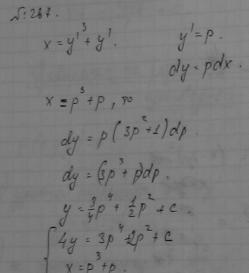 №: 287.
x = y'³ + y'.    y' = p.
dy = pdx.
x = p³ + p, то
dy = p(3p² + 1)dp
dy = (3p³ + p)dp.
y = 3/4 p⁴ + 1/2 p² + c.
4y = 3p⁴ + 2p² + c
x = p³ + p.